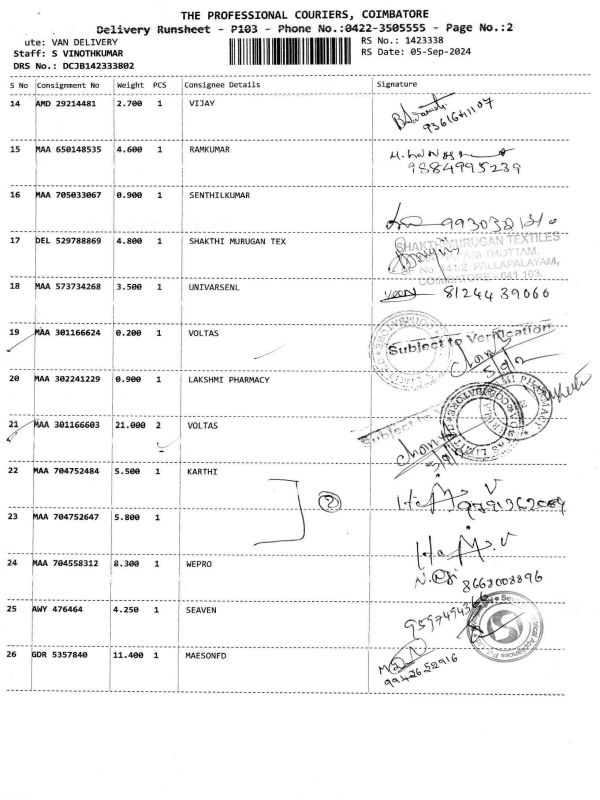 THE PROFESSIONAL COURIERS, COIMBATORE
Delivery Runsheet - P103 - Phone No.:0422-3505555 - Page No.:2
ute: VAN DELIVERY
RS No.: 1423338
Staff: S VINOTHKUMAR
RS Date: 05-Sep-2024
DRS No.: DCJB142333802
S No Consignment No Weight PCS Consignee Details Signature
14 AMD 29214481 2.700 1 VIJAY
9361641107
15 MAA 650148535 4.600 1 RAMKUMAR
9884995239
16 MAA 705033067 0.900 1 SENTHILKUMAR
17 DEL 529788869 4.800 1 SHAKTHI MURUGAN TEX
SHAKTHI MURUGAN TEXTILES
THOTTAM,
PALLAPALAYAM,
COIMBATORE - 641 103.
18 MAA 573734268 3.500 1 UNIVARSENL
8124439066
19 MAA 301166624 0.200 1 VOLTAS
Subject to Verification
20 MAA 302241229 0.900 1 LAKSHMI PHARMACY
21 MAA 301166603 21.000 2 VOLTAS
Subject to
22 MAA 704752484 5.500 1 KARTHI
2
23 MAA 704752647 5.800 1
24 MAA 704558312 8.300 1 WEPRO
8668003896
25 AWY 476464 4.250 1 SEAVEN
9597494366
26 GDR 5357840 11.400 1 MAESONFD
9942652916